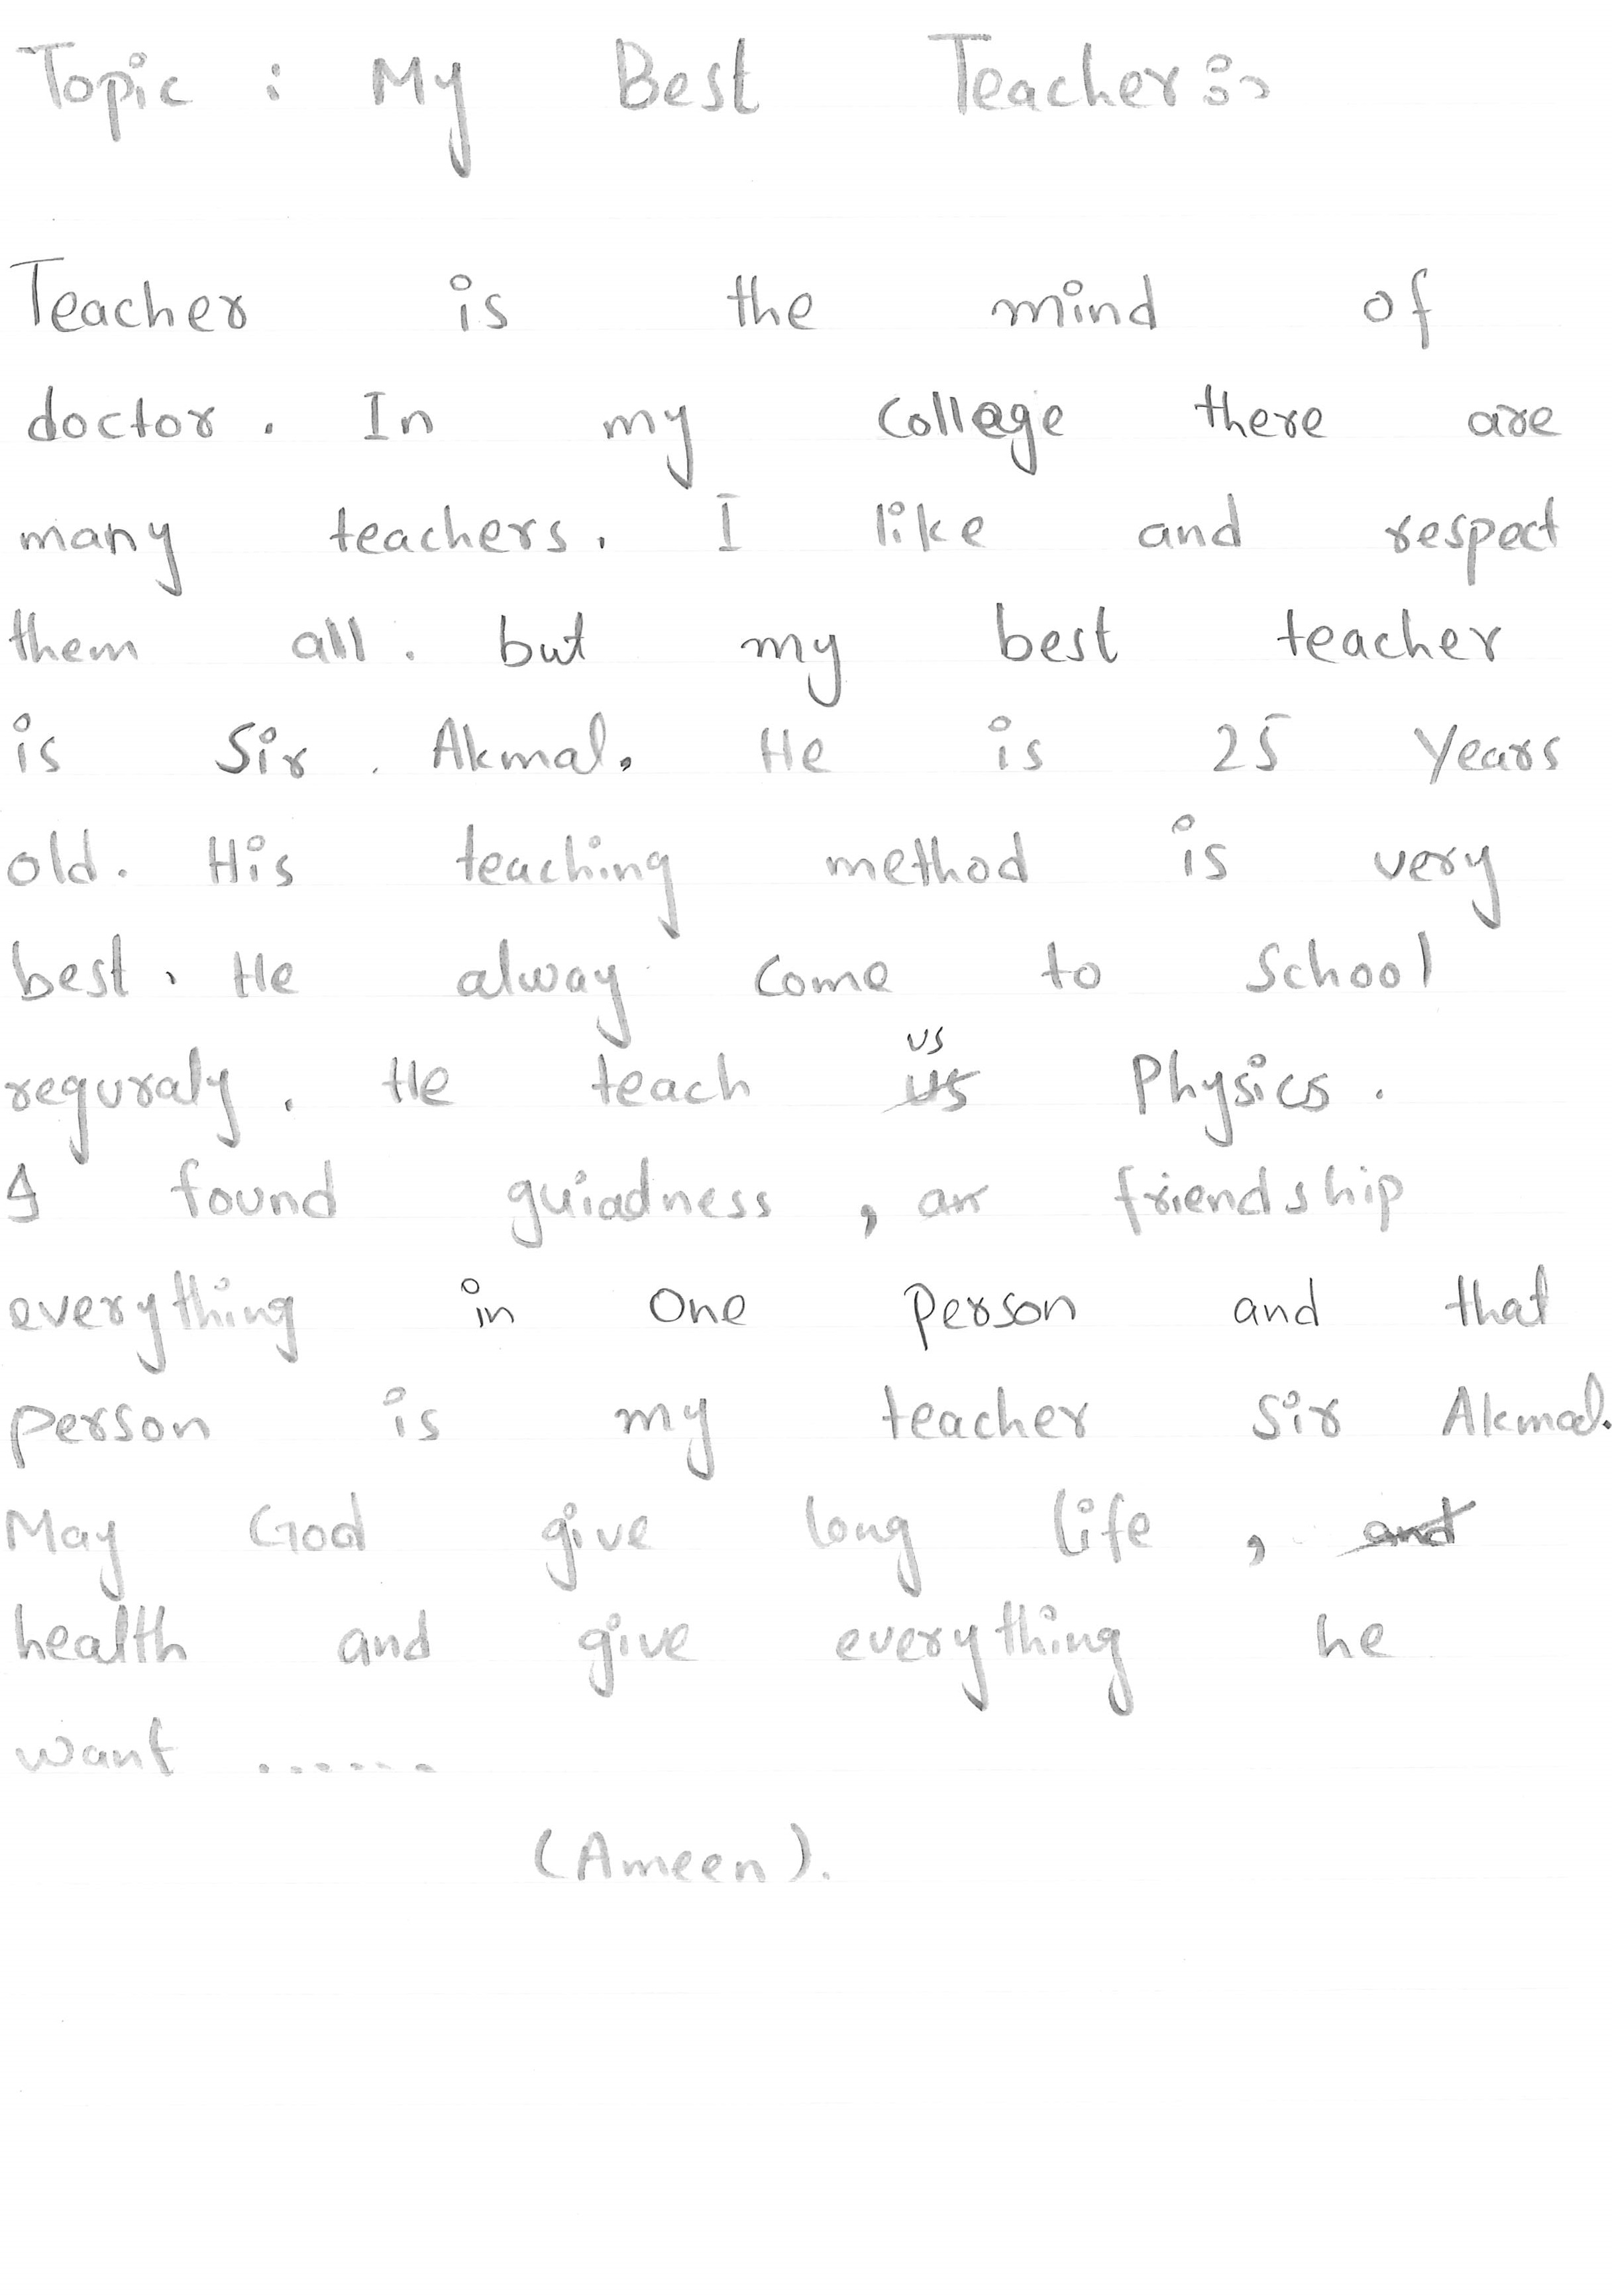 Topic : My Best Teacher:-
Teacher is the mind of
doctor. In my College there are
many teachers. I like and respect
them all. but my best teacher
is Sir. Akmal. He is 25 Years
old. His teaching method is very
best. He alway come to School
reguraly. He teach us Physics.
I found guiadness, an friendship
everything in one Person and that
person is my teacher Sir Akmal.
May God give long life,
health and give everything he
want ......
(Ameen).